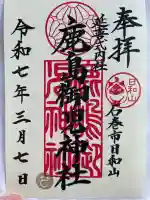 奉拝
石巻市日和山
日和山
延喜式内社
鹿島御児神社
令和七年三月七日